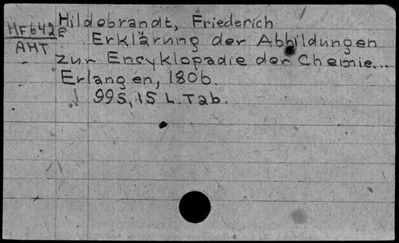 Hildebrandt, Friederich
MF642E
AMT
Erklärung der Abbildungen
zur Encyklopadie der Chemie...
Erlangen, 1806.
99S, 15 L. Tab.